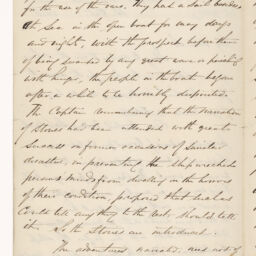 for the use of the oars. They had a Sail besides
at Sea in the open boat for many days
and nights, with the prospect before them
of being swamped by any great wave or perished
with hunger, the people in the boat began
after a while to be horribly dispirited.
The Captain remembering that the narration
of Stories had been attended with great
Success on former occasions of Similar
disasters, in preventing the shipwrecked
persons' minds from dwelling on the horrors
of their condition, proposed that such as
Could tell anything to the rest should tell
it. So the Stories are introduced.
The adventures narrated, need not of